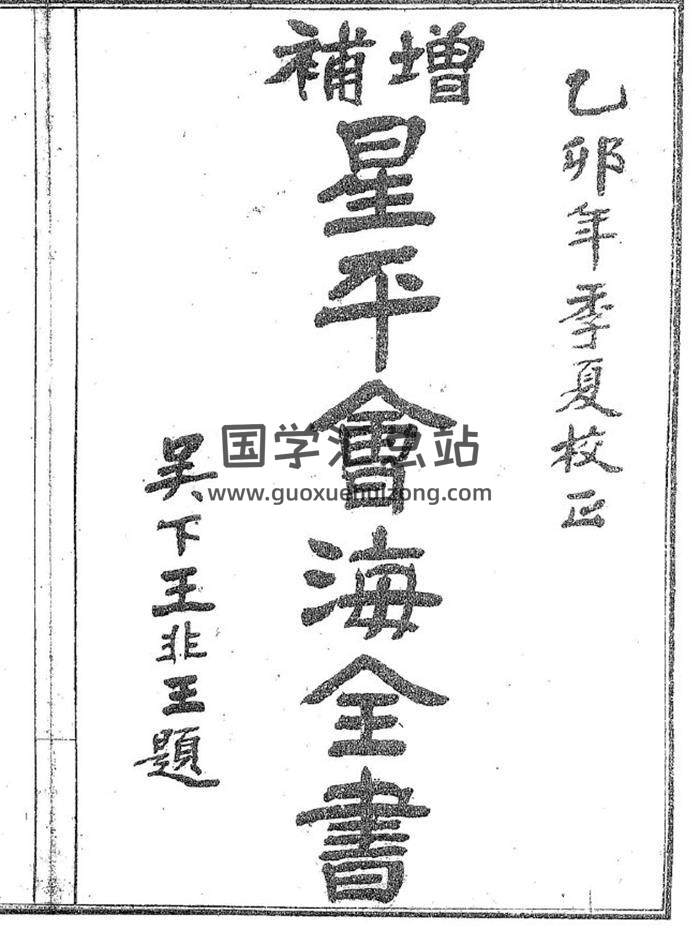 乙卯年季夏校正
增補
星平會海全書
吴下王非王題
国学汇总站
www.guoxuehuizong.com